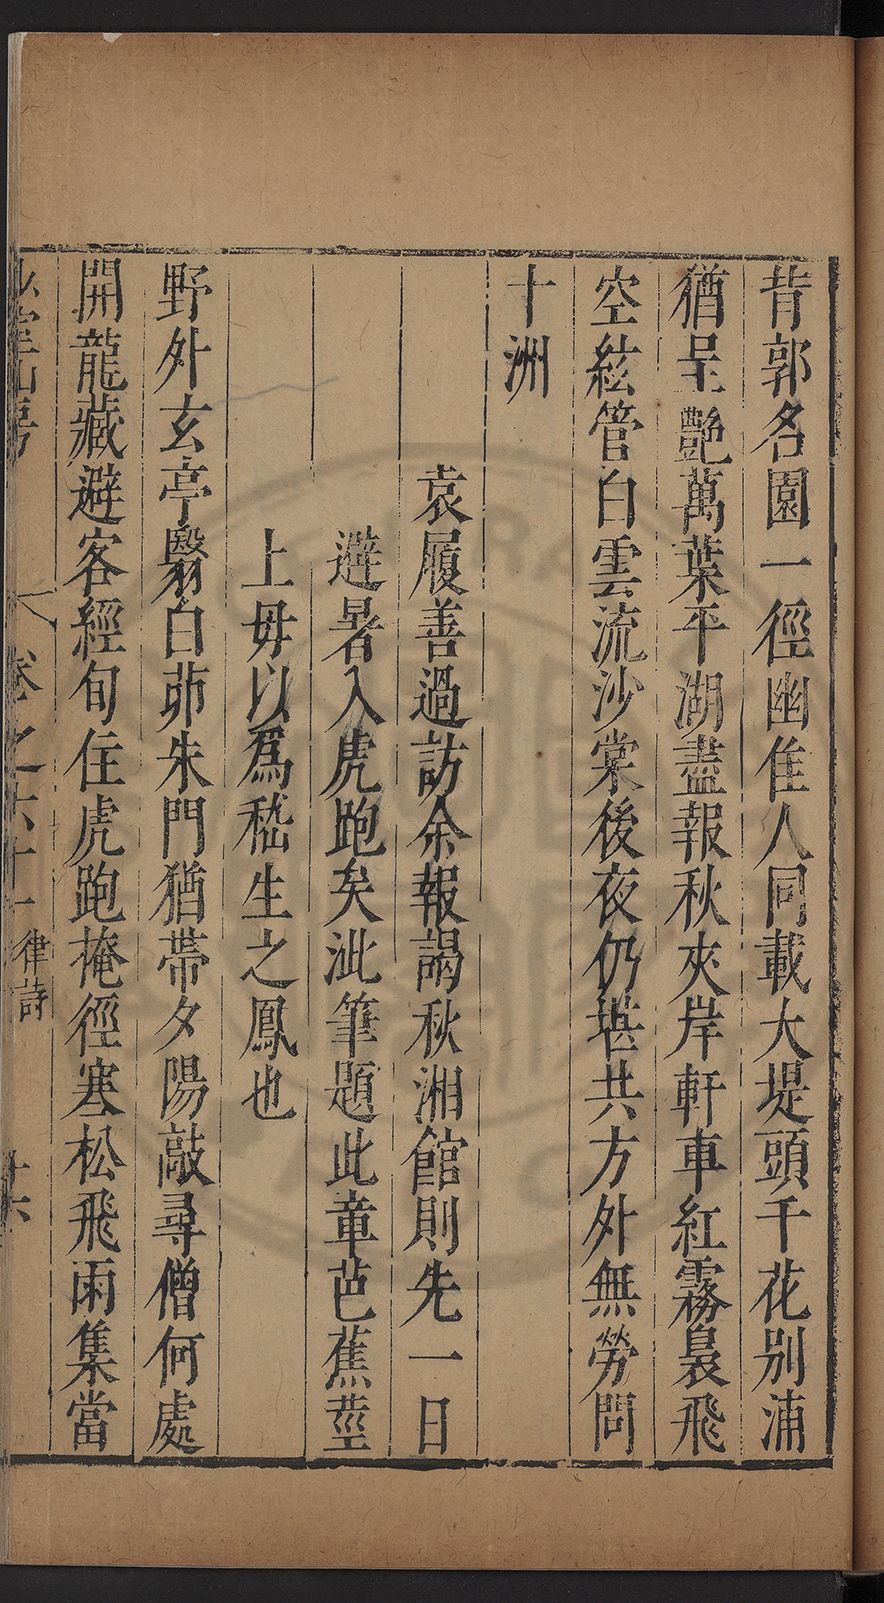 背郭名園一徑幽佳人同載大堤頭千花别浦
猶呈艷萬葉平湖盡報秋夾岸軒車紅霧裊飛
空絃管白雲流沙棠後夜仍堪共方外無勞問
十洲
袁履善過訪余報謁秋湘館則先一日
避暑入虎跑矣泚筆題此章芭蕉莖
上毋以爲嵇生之鳳也
野外玄亭翳白茆朱門猶帶夕陽敲尋僧何處
開龍藏避客經旬住虎跑掩徑寒松飛雨集當
少室山房 卷之六十一 律詩 十六